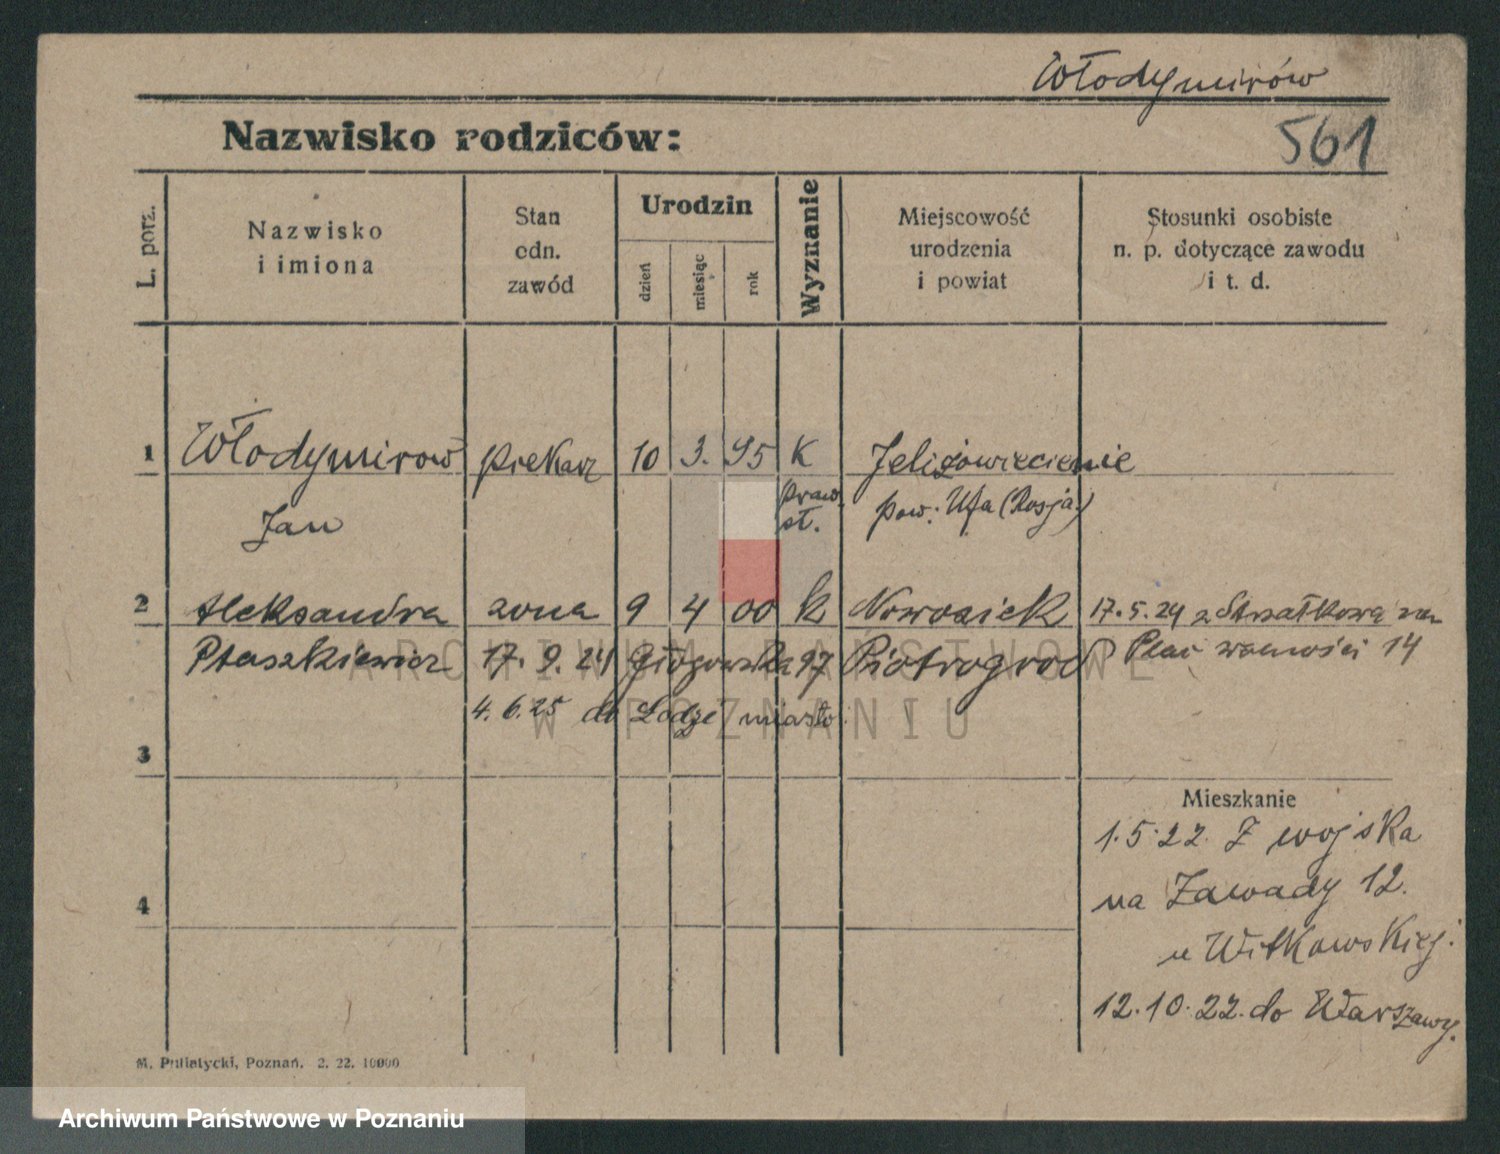 Włodymirów
Nazwisko rodziców:
561
L. porz.
Nazwisko
i imiona
Stan
odn.
zawód
Urodzin
dzień
miesiąc
rok
Wyznanie
Miejscowość
urodzenia
i powiat
Stosunki osobiste
n. p. dotyczące zawodu
i t. d.
1 Włodymirow piekarz 10 3. 95 K
Jan praw. st. pow. Ufa (Rosja)
2 Aleksandra żona 9 4 00 k 17.5.24 z
Ptaszkiewicz 17. 9. 24 Głogowska 97 Piotrogrod Plac wolności 14
4.6.25 do Łodzi miasto.
3
Mieszkanie
1.5.22. Z wojska
na Zawady 12.
4
u Witkowskiej.
12.10.22. do Warszawy.
M. Putiatycki, Poznań. 2. 22. 10000
ARCHIWUM PAŃSTWOWE
W POZNANIU
Archiwum Państwowe w Poznaniu